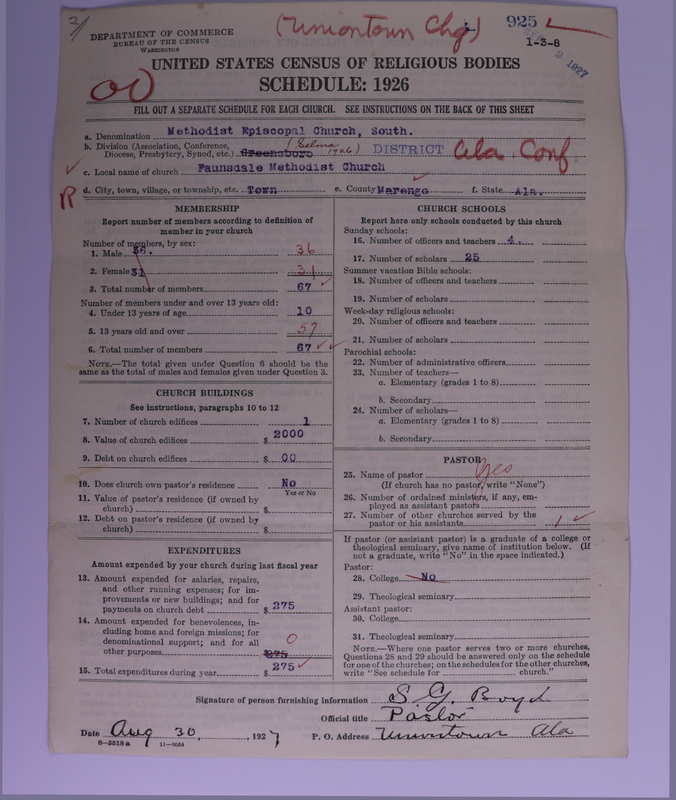 2/
(Uniontown Chg)
925
1-3-8
1927
DEPARTMENT OF COMMERCE
BUREAU OF THE CENSUS
WASHINGTON
UNITED STATES CENSUS OF RELIGIOUS BODIES
SCHEDULE: 1926
FILL OUT A SEPARATE SCHEDULE FOR EACH CHURCH. SEE INSTRUCTIONS ON THE BACK OF THIS SHEET
a. Denomination Methodist Episcopal Church, South.
b. Division (Association, Conference, Diocese, Presbytery, Synod, etc.) Greensboro (Selma 1926) DISTRICT Ala. Conf
c. Local name of church Faunsdale Methodist Church
R d. City, town, village, or township, etc. Town e. County Marengo f. State Ala.
MEMBERSHIP
Report number of members according to definition of
member in your church
Number of members, by sex:
1. Male 36. 36
2. Female 31 31
3. Total number of members 67
Number of members under and over 13 years old:
4. Under 13 years of age 10
5. 13 years old and over 57
6. Total number of members 67
NOTE.—The total given under Question 6 should be
same as the total of males and females given under Question 3.
CHURCH BUILDINGS
See instructions, paragraphs 10 to 12
7. Number of church edifices 1
8. Value of church edifices $ 2000
9. Debt on church edifices $ 00
10. Does church own pastor's residence No
Yes or No
11. Value of pastor's residence (if owned by
church) $
12. Debt on pastor's residence (if owned by
church) $
EXPENDITURES
Amount expended by your church during last fiscal year
13. Amount expended for salaries, repairs,
and other running expenses; for im-
provements or new buildings; and for
payments on church debt $ 275
14. Amount expended for benevolences, in-
cluding home and foreign missions; for
denominational support; and for all
other purposes 0 $275
15. Total expenditures during year $ 275
CHURCH SCHOOLS
Report here only schools conducted by this church
Sunday schools:
16. Number of officers and teachers 4.
17. Number of scholars 25
Summer vacation Bible schools:
18. Number of officers and teachers
19. Number of scholars
Week-day religious schools:
20. Number of officers and teachers
21. Number of scholars
Parochial schools:
22. Number of administrative officers
23. Number of teachers—
a. Elementary (grades 1 to 8)
b. Secondary
24. Number of scholars—
a. Elementary (grades 1 to 8)
b. Secondary
PASTOR
25. Name of pastor yes
(If church has no pastor, write "None")
26. Number of ordained ministers, if any, em-
ployed as assistant pastors
27. Number of other churches served by the
pastor or his assistants 1
If pastor (or assistant pastor) is a graduate of a college or
theological seminary, give name of institution below. (If
not a graduate, write "No" in the space indicated.)
Pastor:
28. College No
29. Theological seminary
Assistant pastor:
30. College
31. Theological seminary
NOTE.—Where one pastor serves two or more churches,
Questions 28 and 29 should be answered only on the schedule
for one of the churches; on the schedules for the other churches,
write "See schedule for church."
Signature of person furnishing information S. G. Boyd
Official title Pastor
Date Aug 30, 1927 P. O. Address Uniontown Ala
8-5518a 11-9054